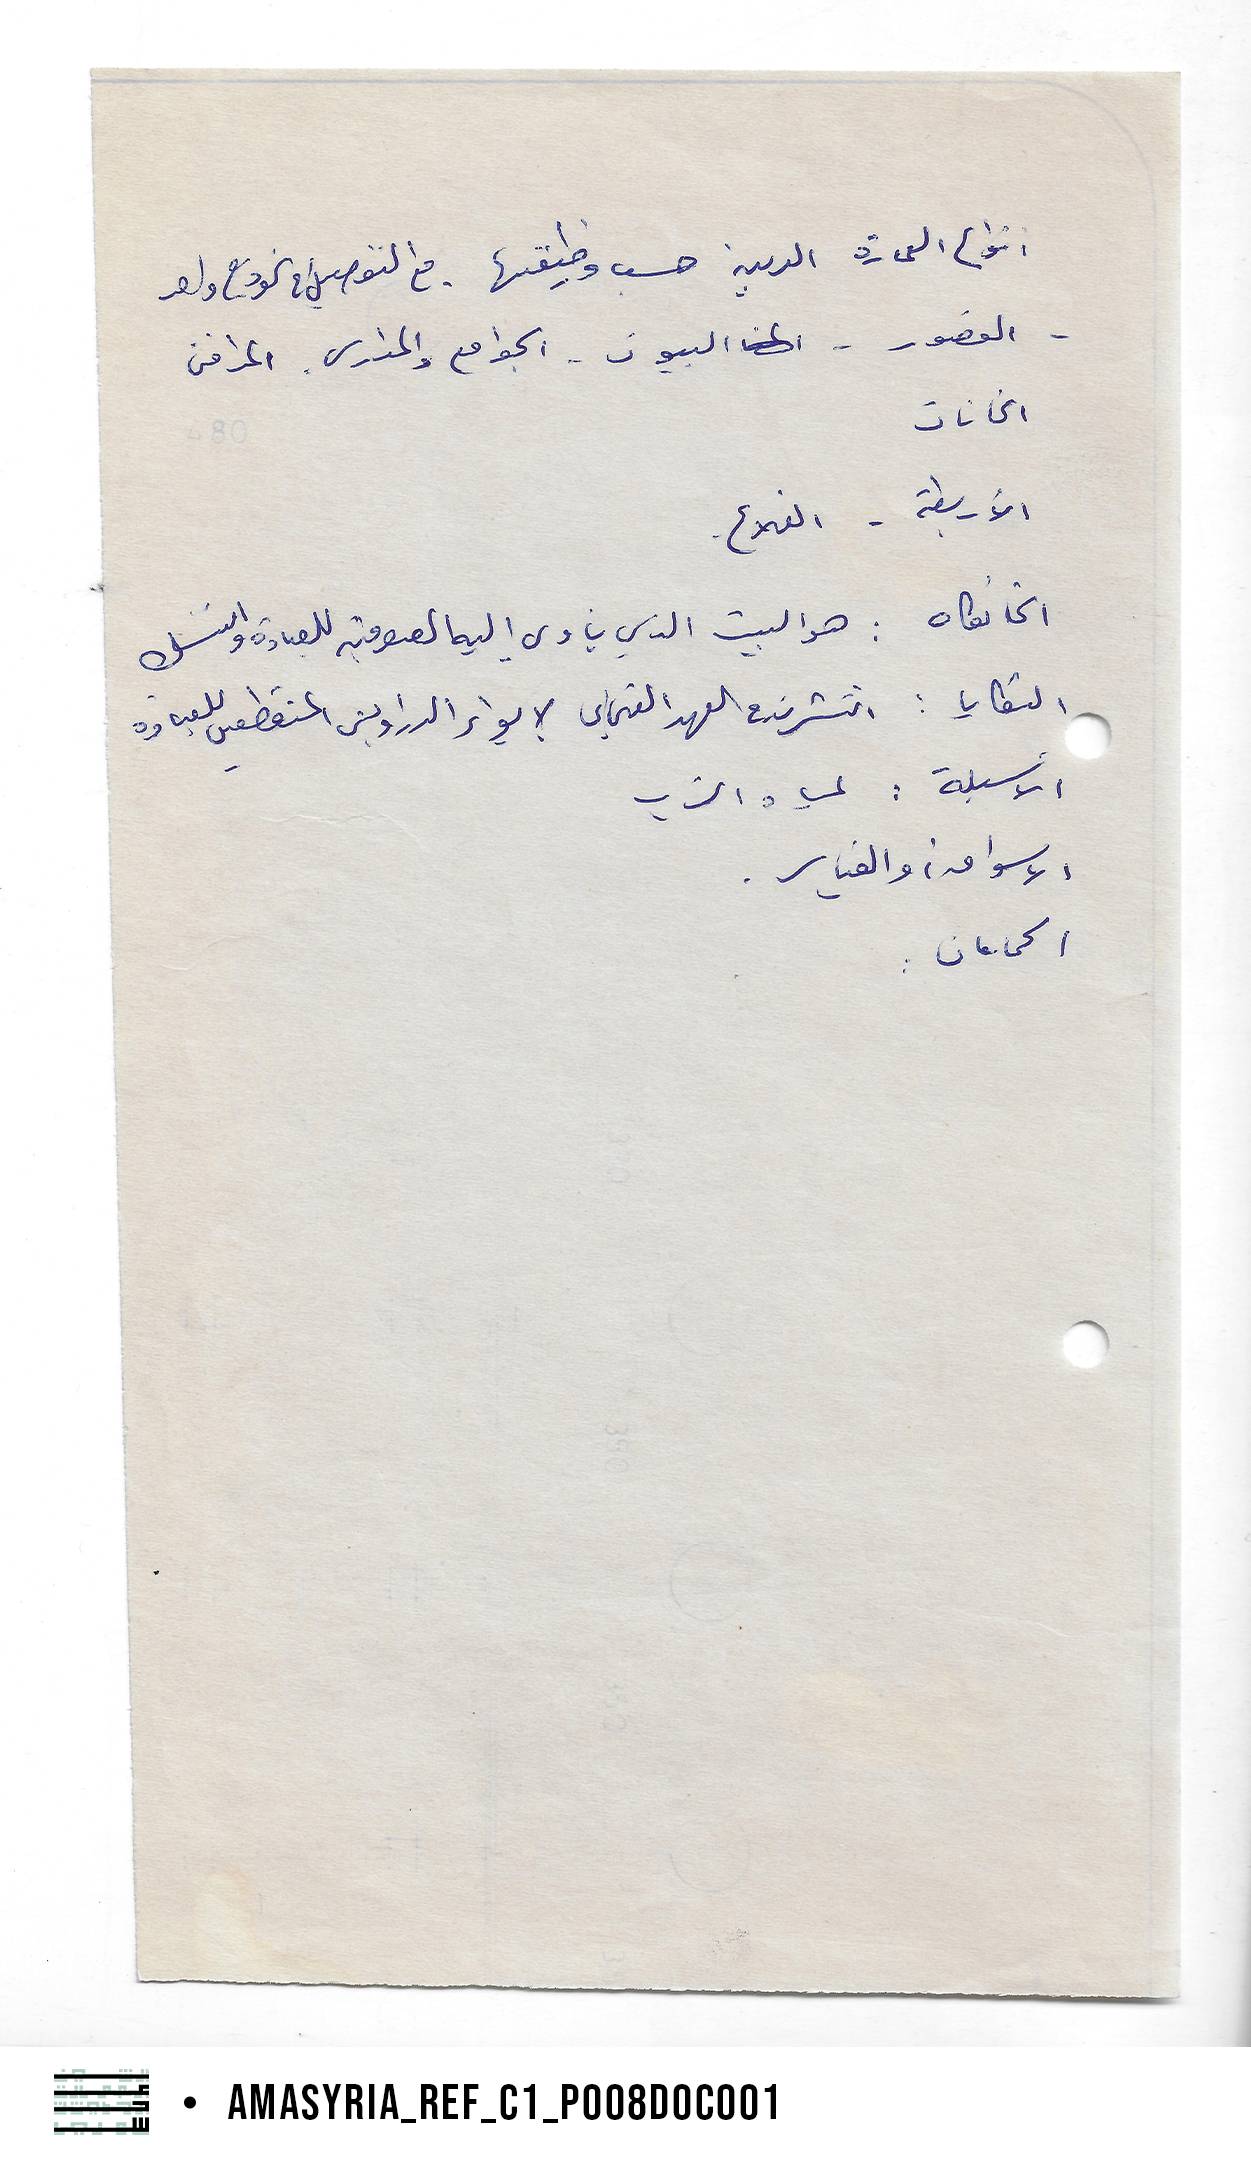 انواع العمارة العربية حسب وظيفتها . مع التفصيل في نموذج واحد
- القصور - البيوت - الجوامع والمدارس . المدافن
الخانات
الأربطة - القلاع .
الخانكاه : هو البيت الذي يأوي إليه الصوفية للعبادة والتنسك
التكايا : انتشر في العهد العثماني لإيواء الدراويش المنقطعين للعبادة
الأسبلة : لمياه الشرب
الاسواق والقياسر .
الحمامات :
• AMASYRIA_REF_C1_P008DOC001